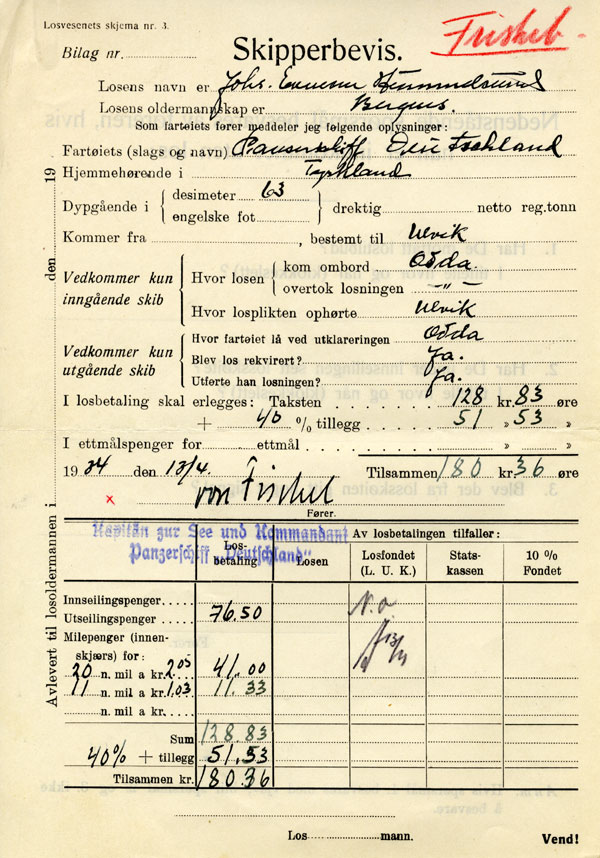 Losvesenets skjema nr. 3.
Friskel-
Bilag nr.
Skipperbevis.
Losens navn er Johs.
Losens oldermannskap er Bergens.
Som fartøiets fører meddeler jeg følgende oplysninger:
Fartøiets (slags og navn) Panserskiff Deutschland
Hjemmehørende i Tyskland
Dypgående i desimeter 63
engelske fot drektig netto reg.tonn
Kommer fra , bestemt til Ulvik
Vedkommer kun inngående skib
Hvor losen kom ombord Odda
overtok losningen -"-
Hvor losplikten ophørte Ulvik
Vedkommer kun utgående skib
Hvor fartøiet lå ved utklareringen Odda
Blev los rekvirert? Ja.
Utførte han losningen? Ja.
I losbetaling skal erlegges: Taksten 128 kr. 83 øre
+ 40 % tillegg 51 " 53 "
I ettmålspenger for ettmål " "
1934 den 13/4. Tilsammen 180 kr. 36 øre
x von Fischel
Fører.
Kapitän zur See und Kommandant
Panzerschiff „Deutschland"
Los-betaling
Losen
Av losbetalingen tilfaller:
Losfondet (L. U. K.)
Stats-kassen
10 % Fondet
Innseilingspenger
Utseilingspenger 76.50
N.o.
Milepenger (innen-
skjærs) for:
20 n. mil a kr. 2.05 41.00
11 n. mil a kr. 1.03 11.33
n. mil a kr.
Sum 128.83
40% + tillegg 51.53
Tilsammen kr. 180.36
Los mann.
Vend!
Avlevert til losoldermannen i den 19